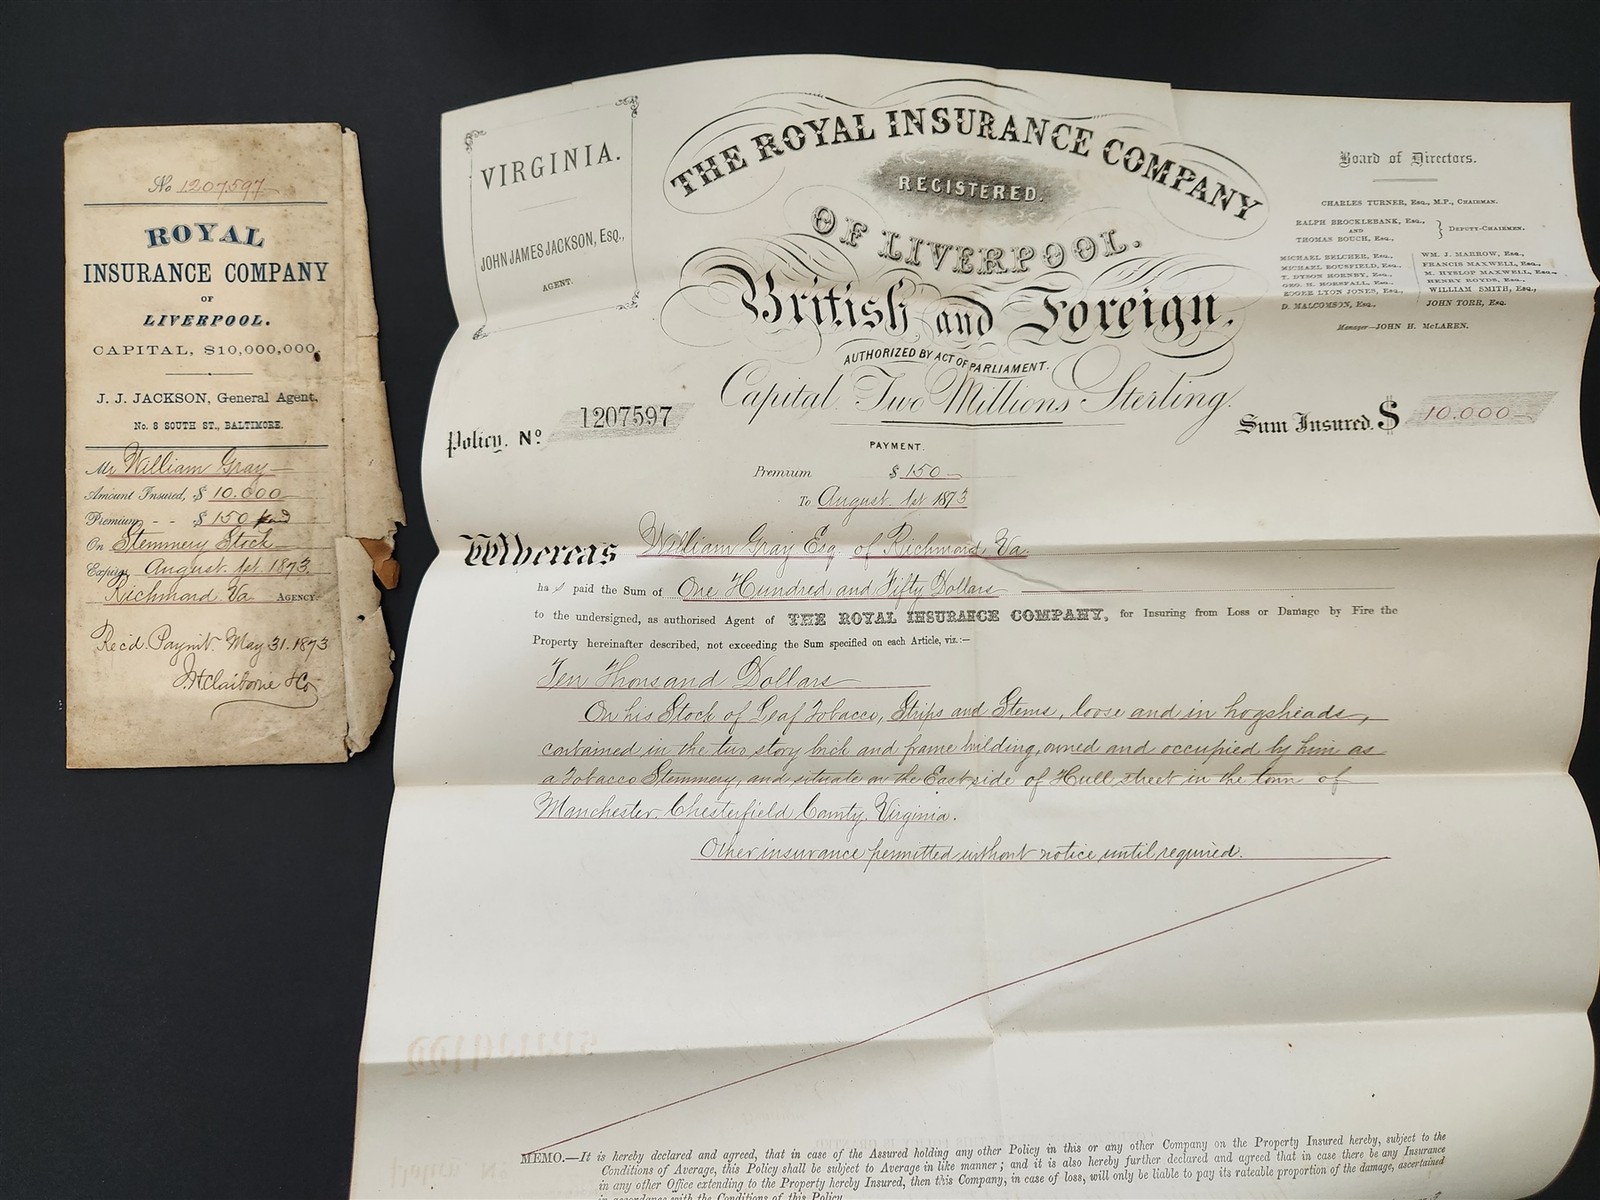 No 1207597
ROYAL
INSURANCE COMPANY
OF
LIVERPOOL.
CAPITAL, $10,000,000.
J. J. JACKSON, General Agent.
No. 8 SOUTH ST., BALTIMORE.
Mr William Gray
Amount Insured, $ 10.000
Premium - - $ 150 paid
On Stemmery Stock
Expires August 1st. 1873.
Richmond Va. AGENCY.
Rec'd. Paym't. May 31. 1873
J. H. Claiborne & Co
VIRGINIA.
JOHN JAMES JACKSON, Esq.,
AGENT.
THE ROYAL INSURANCE COMPANY
REGISTERED.
OF LIVERPOOL.
British and Foreign.
AUTHORIZED BY ACT OF PARLIAMENT.
Capital Two Millions Sterling.
Board of Directors.
CHARLES TURNER, Esq., M.P., CHAIRMAN.
RALPH BROCKLEBANK, Esq.,
AND
THOMAS BOUCH, Esq.,
DEPUTY-CHAIRMEN.
MICHAEL BELCHER, Esq.,
MICHAEL BOUSFIELD, Esq.,
T. DYSON HORNBY, Esq.,
GEO. H. HORSFALL, Esq.,
ROGER LYON JONES, Esq.,
D. MALCOMSON, Esq.,
WM. J. MARROW, Esq.,
FRANCIS MAXWELL, Esq.,
M. HYSLOP MAXWELL, Esq.,
HENRY ROYDS, Esq.,
WILLIAM SMITH, Esq.,
JOHN TORR, Esq.
Manager—JOHN H. McLAREN.
Policy. No 1207597
Sum Insured. $ 10.000
PAYMENT.
Premium $ 150
To August 1st. 1873
Whereas William Gray Esq. of Richmond Va.
ha s paid the Sum of One Hundred and Fifty Dollars
to the undersigned, as authorised Agent of THE ROYAL INSURANCE COMPANY, for Insuring from Loss or Damage by Fire the
Property hereinafter described, not exceeding the Sum specified on each Article, viz.:—
Ten Thousand Dollars
On his Stock of Leaf Tobacco, Strips and Stems, loose and in hogsheads,
contained in the two story brick and frame building, owned and occupied by him as
a Tobacco Stemmery, and situate on the East side of Hull street in the town of
Manchester Chesterfield County, Virginia.
Other insurance permitted without notice until required.
MEMO.—It is hereby declared and agreed, that in case of the Assured holding any other Policy in this or any other Company on the Property Insured hereby, subject to the
Conditions of Average, this Policy shall be subject to Average in like manner; and it is also hereby further declared and agreed that in case there be any Insurance
in any other Office extending to the Property hereby Insured, then this Company, in case of loss, will only be liable to pay its rateable proportion of the damage, ascertained
in accordance with the Conditions of this Policy.